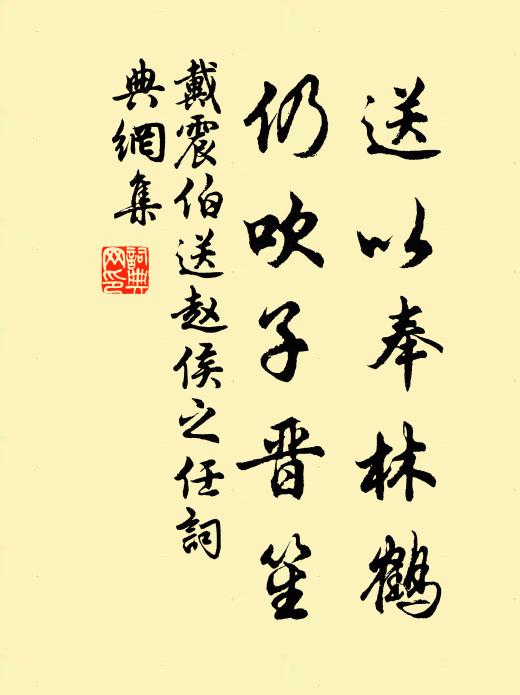 送以奉林鹤
仍吹子晋笙
戴震伯送赵侯之任詞
典網集
詞典
网印